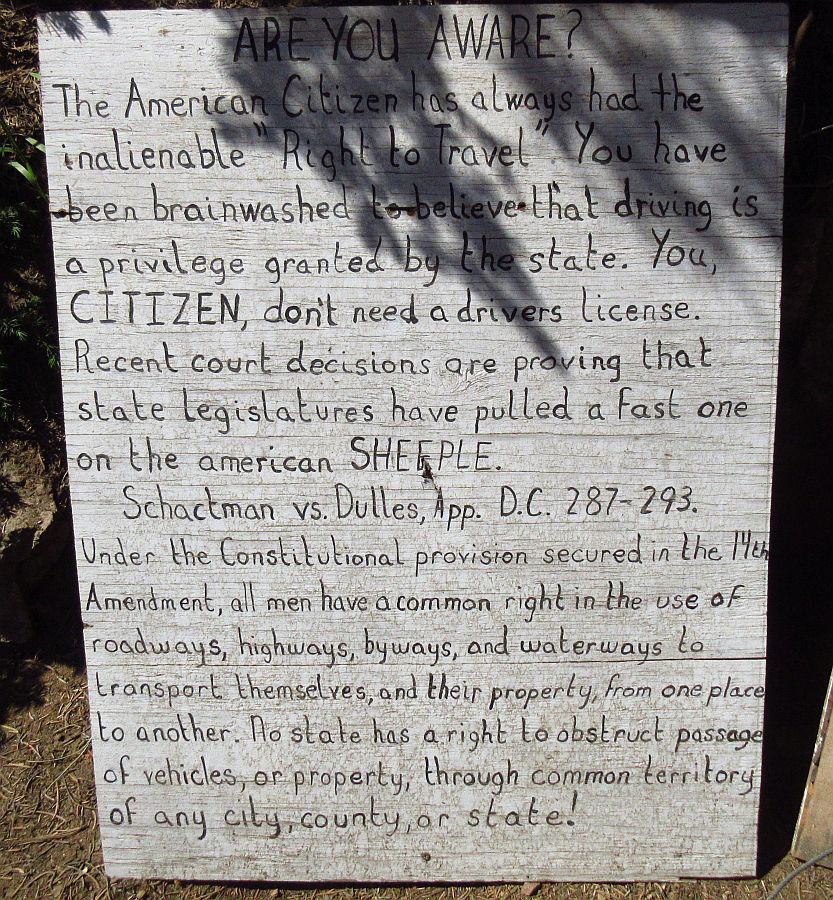 ARE YOU AWARE?
The American Citizen has always had the
inalienable "Right to Travel". You have
been brainwashed to believe that driving is
a privilege granted by the state. You,
CITIZEN, don't need a drivers license.
Recent court decisions are proving that
state legislatures have pulled a fast one
on the american SHEEPLE.
Schactman vs. Dulles, App. D.C. 287-293.
Under the Constitutional provision secured in the 14th
Amendment, all men have a common right in the use of
roadways, highways, byways, and waterways to
transport themselves, and their property, from one place
to another. No state has a right to obstruct passage
of vehicles, or property, through common territory
of any city, county, or state!